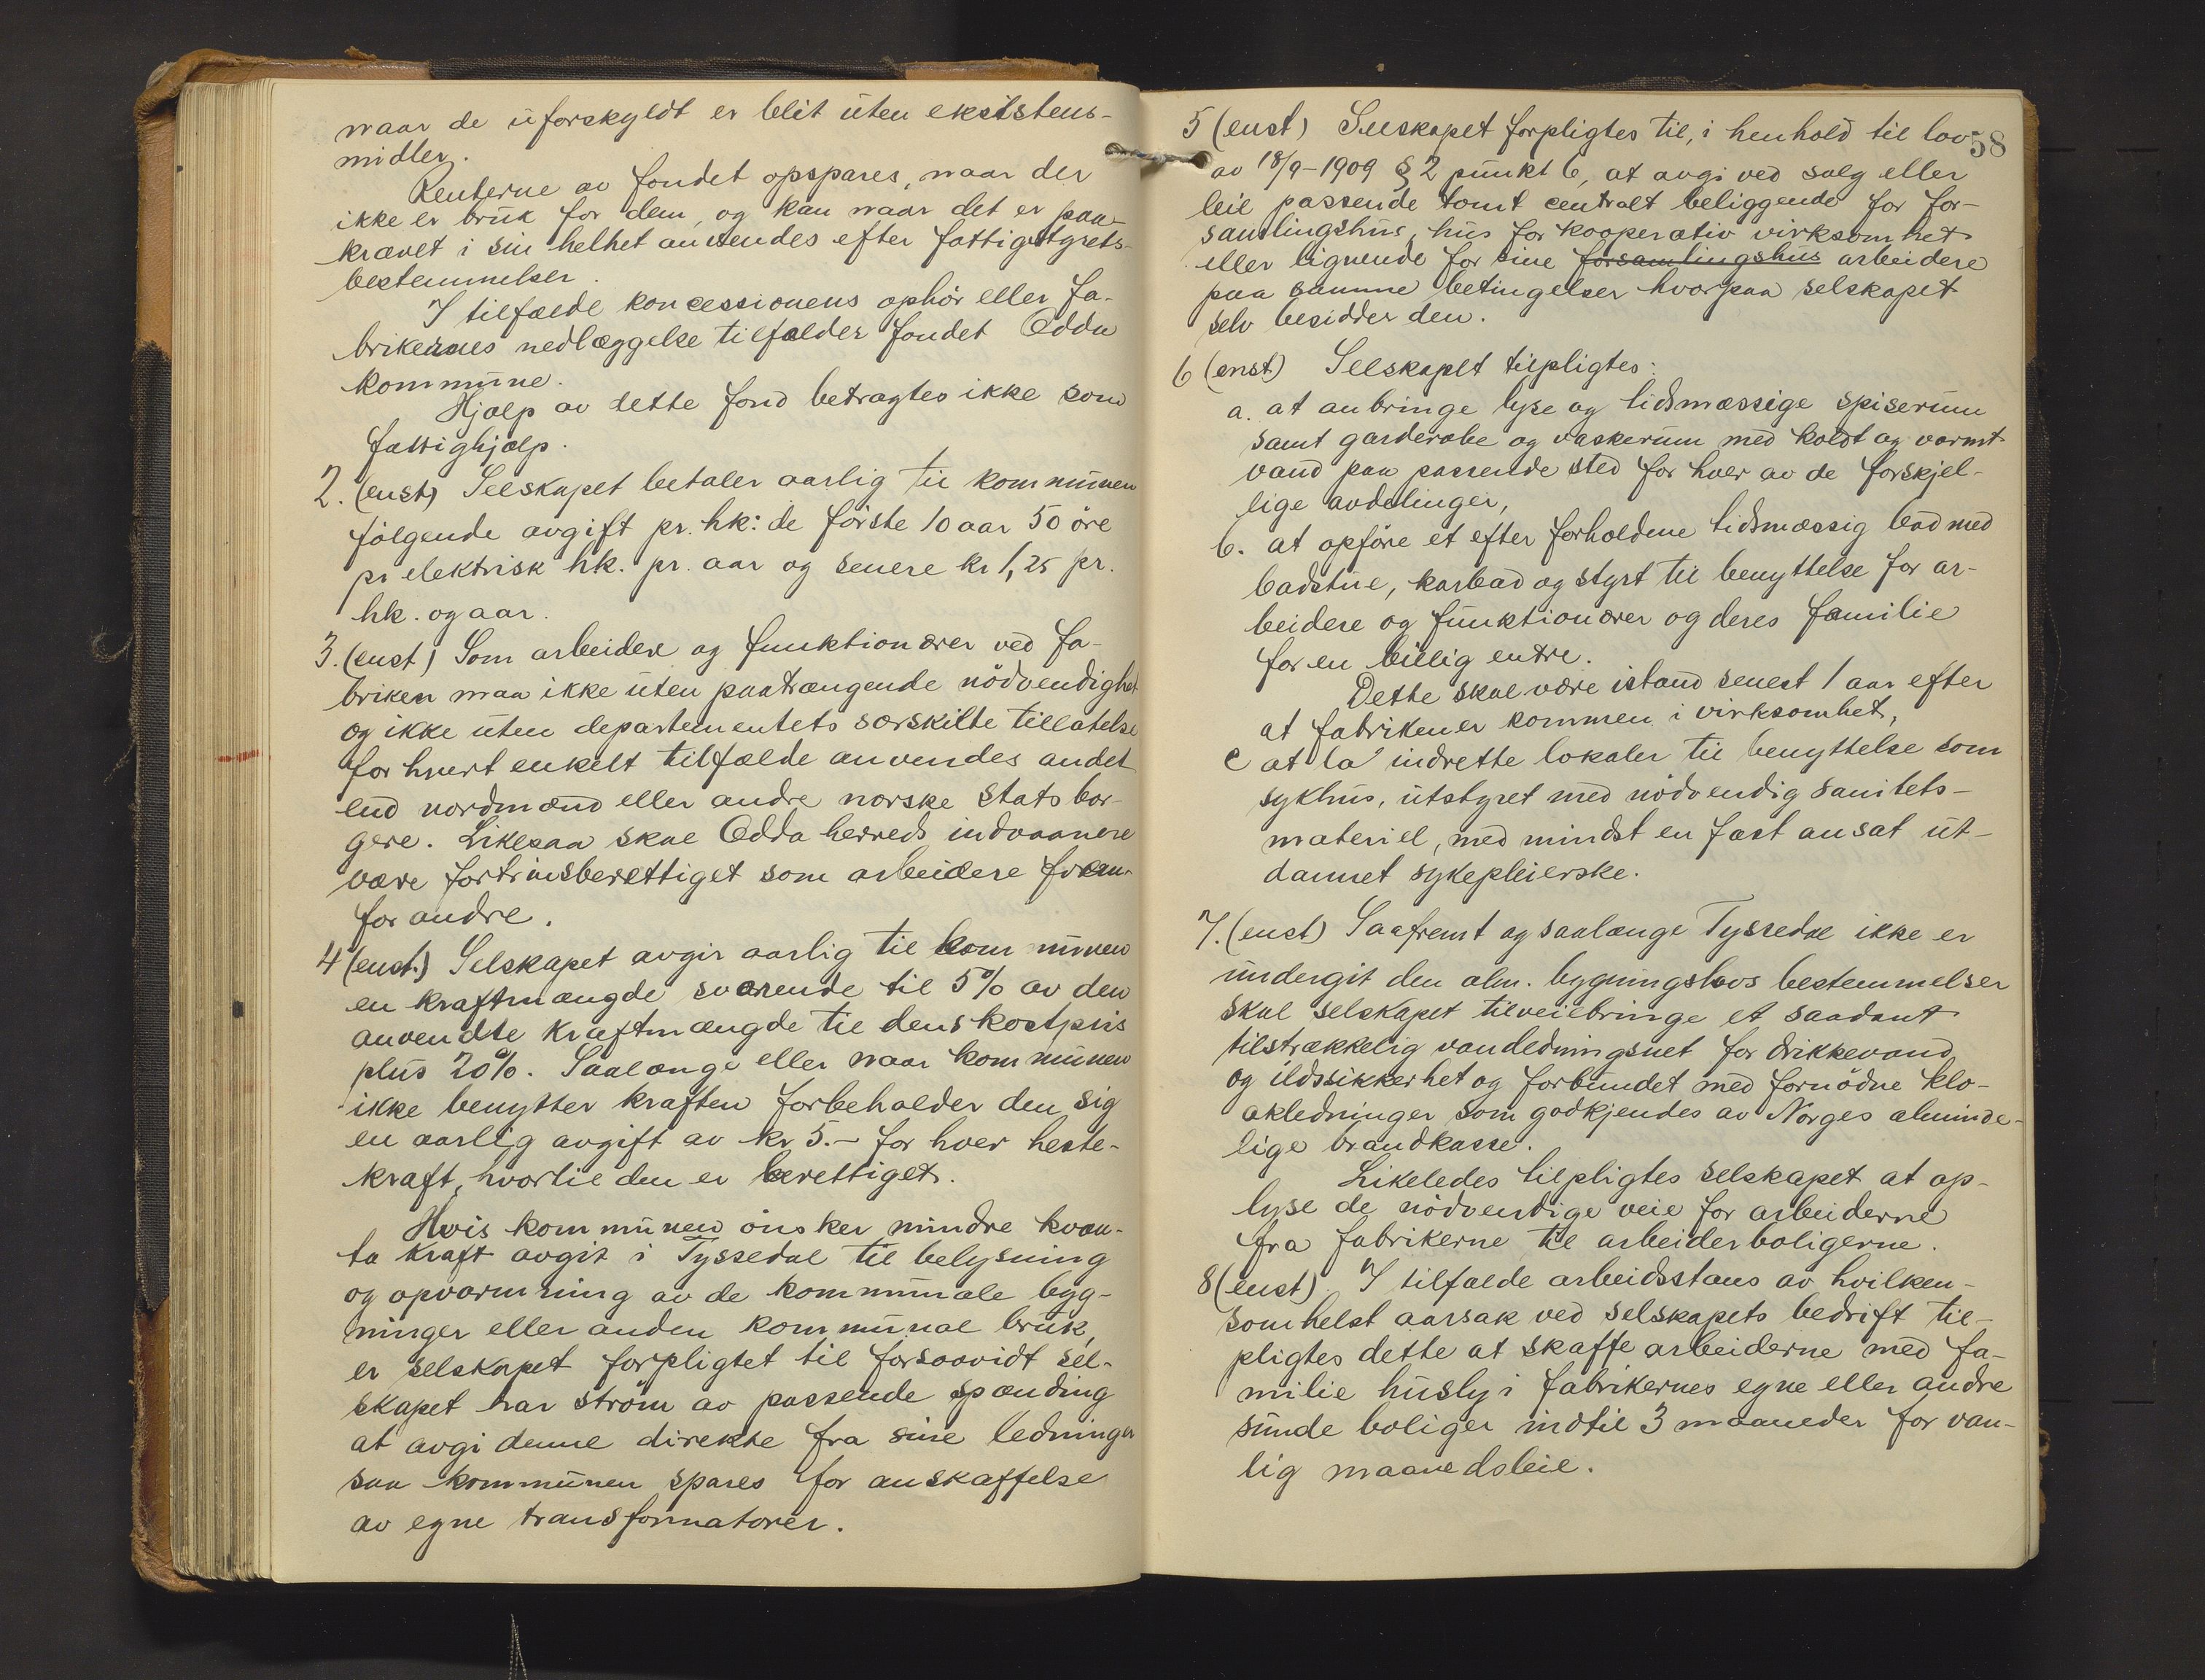 naar de uforskyldt er blit uten eksistens-
midler.
Renterne av fondet opspares, naar der
ikke er bruk for dem, og kan naar det er paa-
krævet i sin helhet anvendes efter fattigstyrets
bestemmelser.
I tilfælde koncessionens ophör eller fa-
brikernes nedlæggelse tilfalder fondet Odda
kommune.
Hjælp av dette fond betragtes ikke som
fattighjælp.
2. (enst) Selskapet betaler aarlig til kommunen
følgende avgift pr. hk: de förste 10 aar 50 öre
pr elektrisk hk. pr. aar og senere kr 1,25 pr.
hk. og aar.
3. (enst) Som arbeidere og funktionærer ved fa-
briken maa ikke uten paatrængende nödvendighet
og ikke uten departementets særskilte tillatelse
for hvert enkelt tilfælde anvendes andet
end nordmænd eller andre norske statsbor-
gere. Likesaa skal Odda herreds indvaanere
være fortrinsberettiget som arbeidere frem-
for andre.
4 (enst.) Selskapet avgir aarlig til kommunen
en kraftmængde svarende til 5% av den
anvendte kraftmængde til dens kostpris
plus 20%. Saalænge eller naar kommunen
ikke benytter kraften forbeholder den sig
en aarlig avgift av kr 5.- for hver heste-
kraft, hvortil den er berettiget.
Hvis kommunen önsker mindre kvan-
ta kraft avgit i Tyssedal til belysning
og opvarmning av de kommunale byg-
ninger eller anden kommunal bruk,
er selskapet forpligtet til forsaavidt sel-
skapet har ström av passende spænding
at avgi denne direkte fra sine ledninger
saa kommunen spares for anskaffelse
av egne transformatorer.
58
5 (enst) Selskapet forpligtes til, i henhold til lov
av 18/9-1909 § 2 punkt 6, at avgi ved salg eller
leie passende tomt centralt beliggende for for-
samlingshus, hus for kooperativ virksomhet
eller lignende for sine forsamlingshus arbeidere
paa samme betingelser hvorpaa selskapet
selv besidder den.
6 (enst) Selskapet tilpligtes:
a. at anbringe lyse og tidsmæssige spiserum
samt garderobe og vaskerum med koldt og varmt
vand paa passende sted for hver av de forskjel-
lige avdelinger,
b. at opföre et efter forholdene tidsmæssig bad med
badstue, karbad og styrt til benyttelse for ar-
beidere og funktionærer og deres familie
for en billig entre.
Dette skal være istand senest 1 aar efter
at fabriken er kommen i virksomhet,
c at la indrette lokaler til benyttelse som
sykhus, utstyret med nödvendig sanitets-
materiel, med mindst en fast ansat ut-
dannet sykepleierske.
7. (enst) Saafremt og saalænge Tyssedal ikke er
undergit den alm. bygningslovs bestemmelser
skal selskapet tilveiebringe et saadant
tilstrækkelig vandledningsnet for drikkevand
og ildssikkerhet og forbundet med fornödne klo-
akledninger som godkjendes av Norges alminde-
lige brandkasse.
Likeledes tilpligtes selskapet at op-
lyse de nödvendige veie for arbeiderne
fra fabrikerne til arbeiderboligerne.
8 (enst). I tilfælde arbeidsstans av hvilken-
somhelst aarsak ved selskapets bedrift til-
pligtes dette at skaffe arbeiderne med fa-
milie husly i fabrikernes egne eller andre
sunde boliger indtil 3 maaneder for van-
lig maanedsleie.